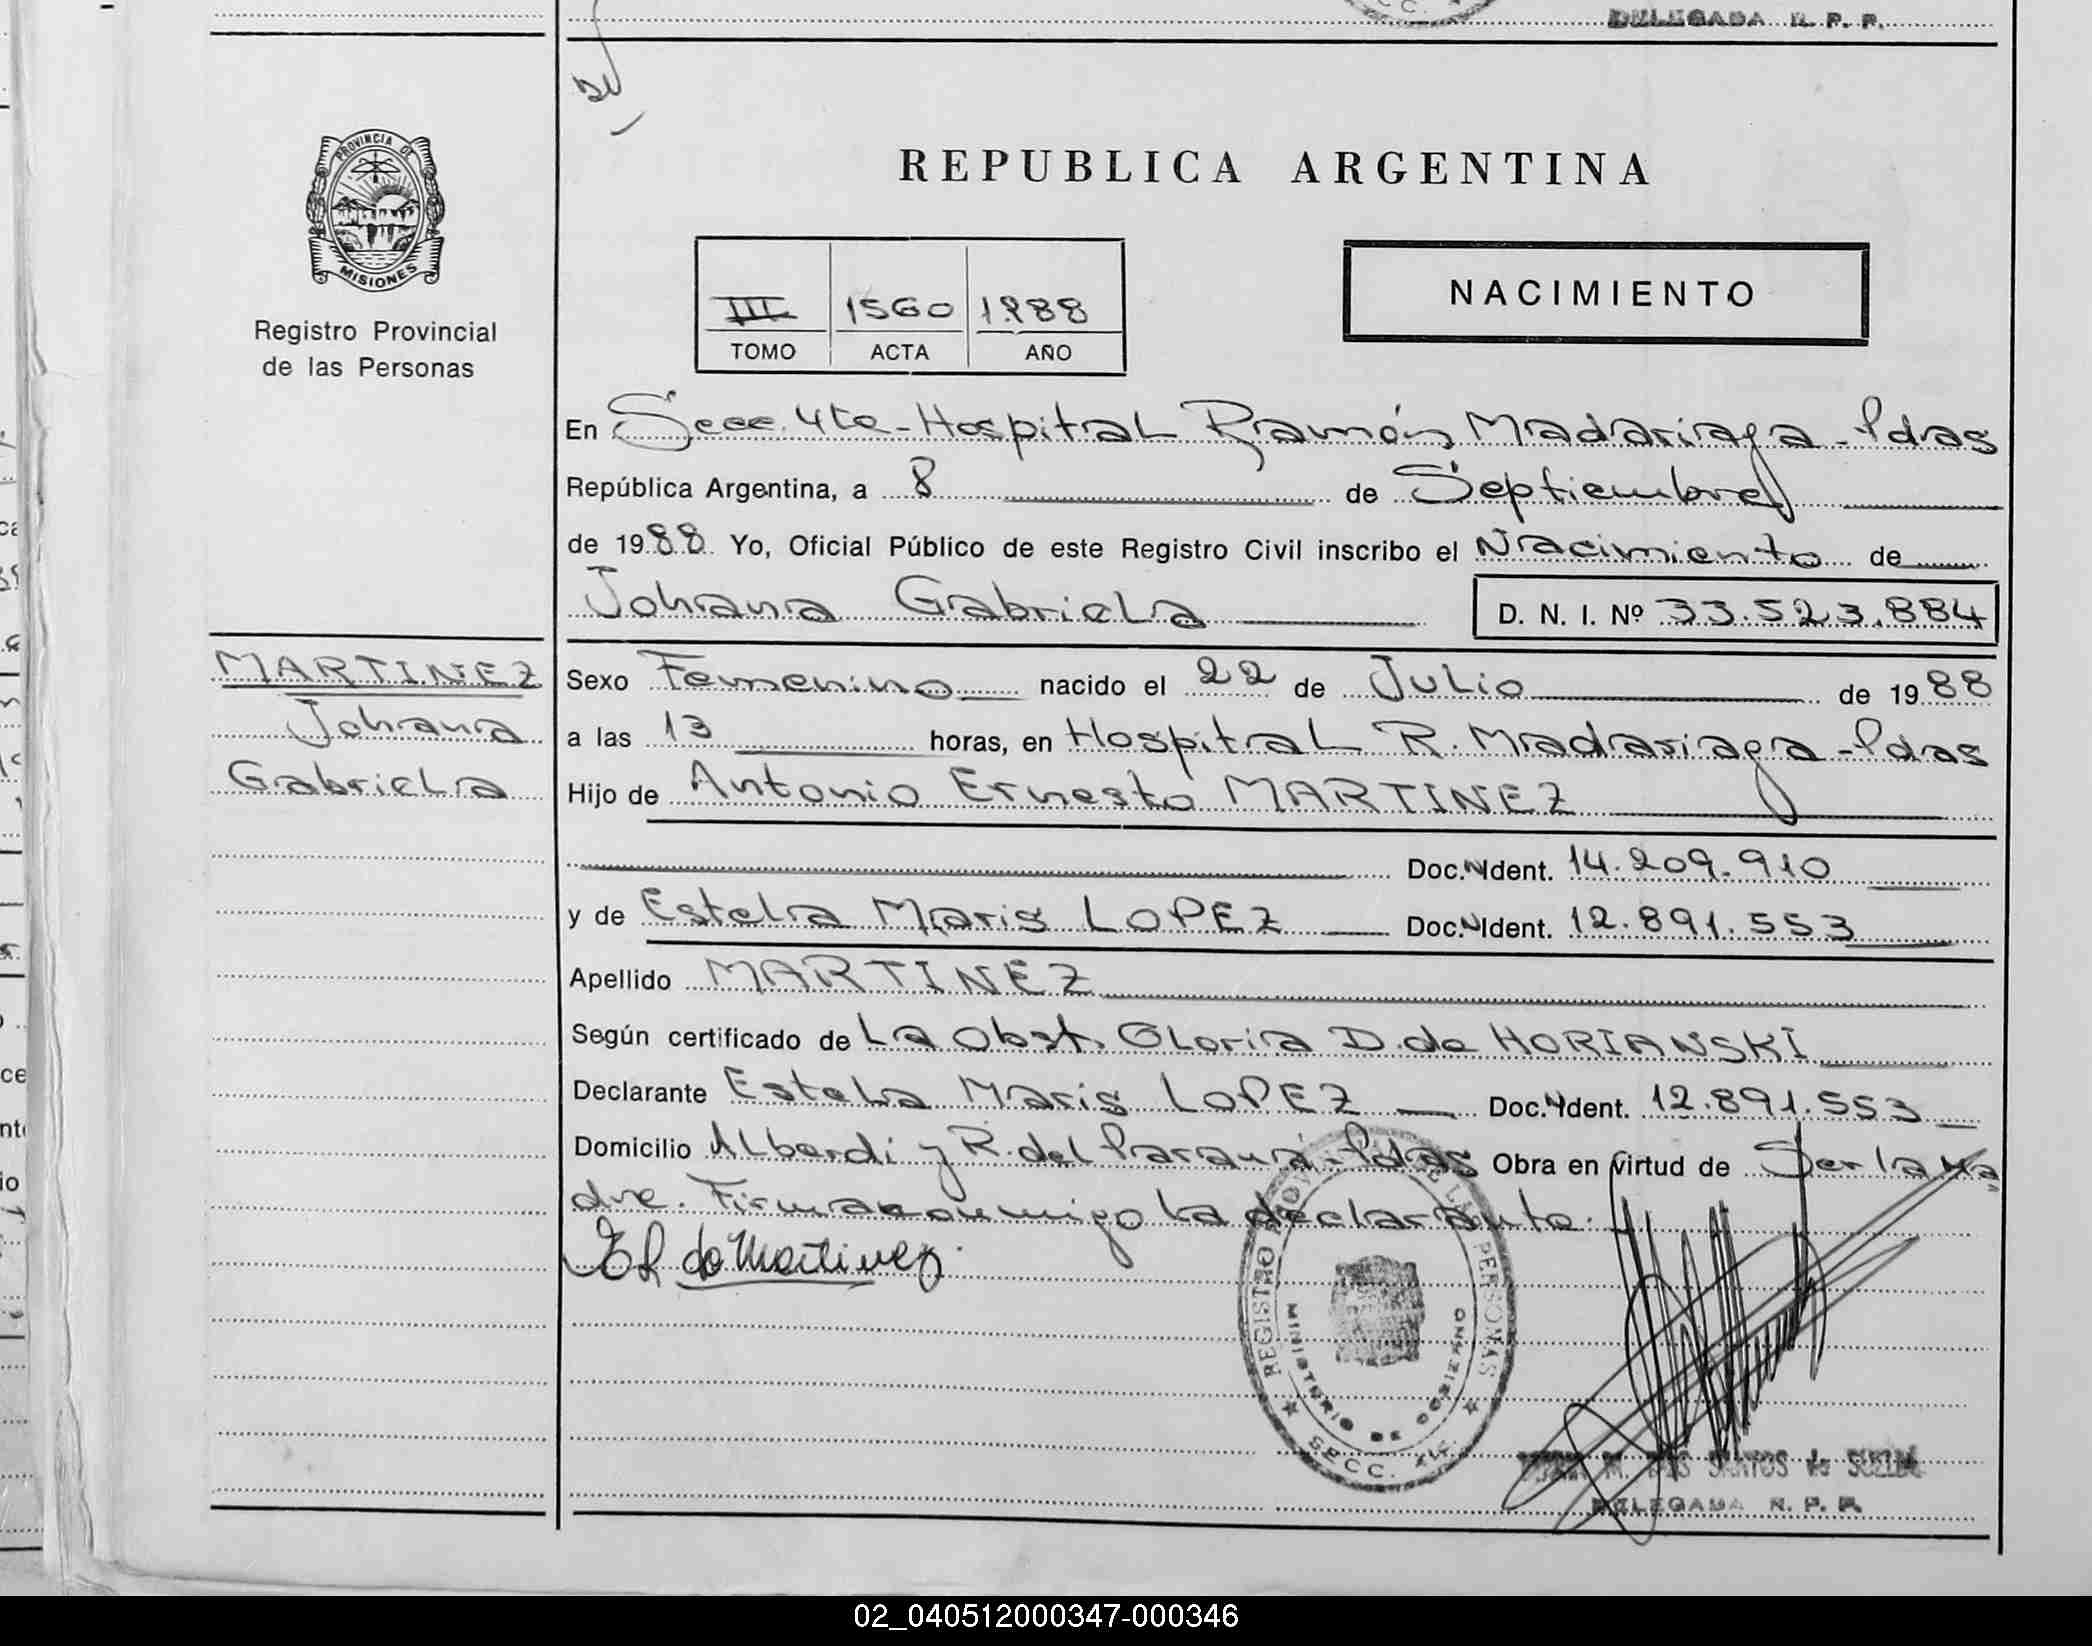 DELEGADA R. P. P.
PROVINCIA DE
MISIONES
Registro Provincial
de las Personas
REPUBLICA ARGENTINA
NACIMIENTO
III 1560 1988
TOMO ACTA AÑO
En Secc. 4ta - Hospital Ramón Madariaga - Pdas
República Argentina, a 8 de Septiembre
de 1988 Yo, Oficial Público de este Registro Civil inscribo el Nacimiento de
Johana Gabriela D. N. I. Nº 33.523.884
MARTINEZ
Johana
Gabriela
Sexo Femenino nacido el 22 de Julio de 1988
a las 13 horas, en Hospital R. Madariaga - Pdas
Hijo de Antonio Ernesto MARTINEZ
Doc.N Ident. 14.209.910
y de Estela Maris LOPEZ Doc.N Ident. 12.891.553
Apellido MARTINEZ
Según certificado de La Obst. Gloria D. de HORIANSKI
Declarante Estela Maris LOPEZ Doc.N Ident. 12.891.553
Domicilio Alberdi y R. del Paraná - Pdas Obra en virtud de Ser la Ma
dre. Firma conmigo la declarante.
EL de Martinez
REGISTRO PROVINCIAL DE LAS PERSONAS
MINISTERIO DE GOBIERNO
SECC.
M. DOS SANTOS de
DELEGADA R. P. P.
02_040512000347-000346